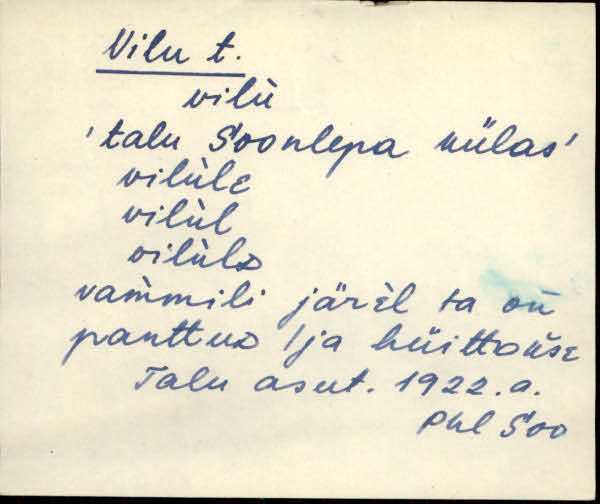 Vilu t.
vilù
'talu Soonlepa külas'
vilùle
vilùl
vilùlᴅ
vam̀mili järèl ta oǹ
panttuᴅ / ja hüittaùse
Talu asut. 1922.a.
Phl Soo